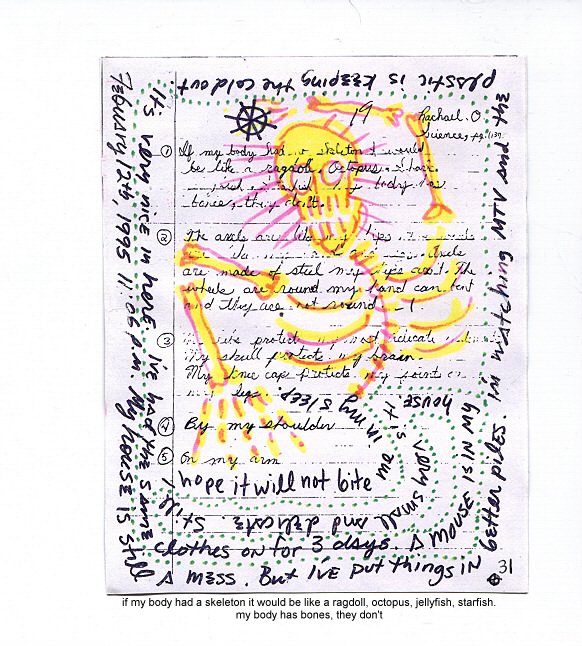 plastic is keeping the cold out
19
Rachael. O
Science, pg. 137
① If my body had a skeleton I would
be like a ragdoll, octopus,
my body has
bones, they don't.
② The axels are like my hips
Axels
are made of steel my hips aren't. The
wheels are round my hand can bent
and they are not round
③ ribs protect my most
My skull protects my brain.
My knee cap protects my joint on
my leg.
④ By my shoulder
⑤ On my arm
February 12th, 1995 11:06 pm My house is still
a mess. But I've put things in
better piles. I'm watching MTV and the
It's very nice in here I've had the same
clothes on for 3 days. A mouse is in my
house. it is
very small and delicate. Still I
hope it will not bite
me in my sleep.
31
if my body had a skeleton it would be like a ragdoll, octopus, jellyfish, starfish.
my body has bones, they don't